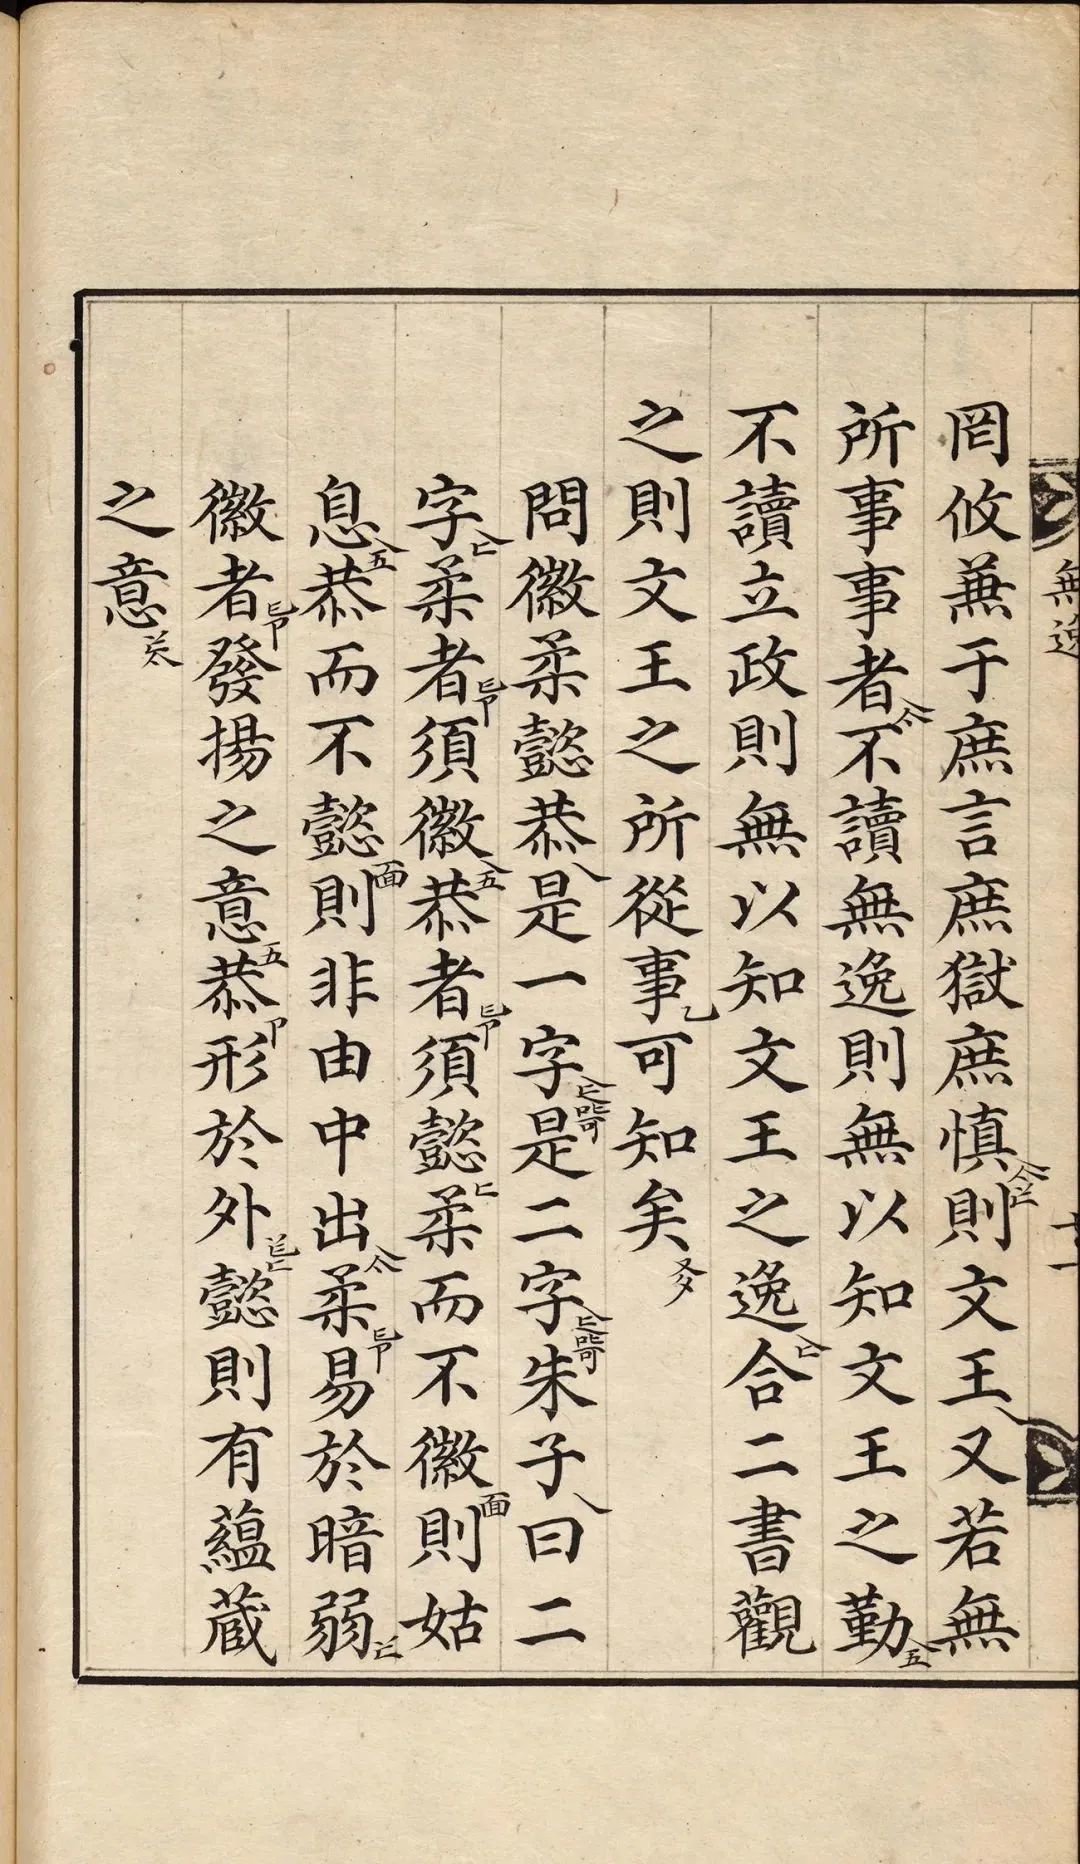 無逸
罔攸兼于庶言庶獄庶慎則文王又若無
所事事者不讀無逸則無以知文王之勤
不讀立政則無以知文王之逸合二書觀
之則文王之所從事可知矣
問徽柔懿恭是一字是二字朱子曰二
字柔者須徽恭者須懿柔而不徽則姑
息恭而不懿則非由中出柔易於暗弱
徽者發揚之意恭形於外懿則有蘊蔵
之意